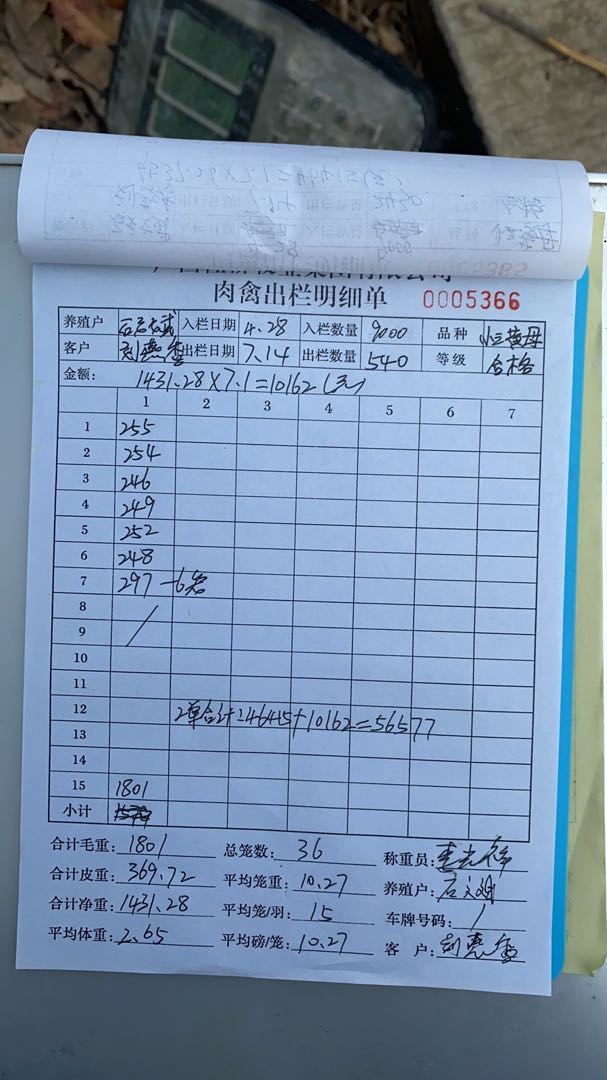 肉禽出栏明细单 0005366
养殖户 入栏日期 4.28 入栏数量 9000 品种
客户 出栏日期 7.14 出栏数量 540 等级 合格
金额: 1431.28×7.1=10162(元)
1 2 3 4 5 6 7
1 255
2 254
3 246
4 249
5 252
6 248
7 297-6笼
8
9
10
11
12 2单合计:46415+10162=56577
13
14
15 1801
小计
合计毛重: 1801 总笼数: 36 称重员:
合计皮重: 369.72 平均笼重: 10.27 养殖户:
合计净重: 1431.28 平均笼/羽: 15 车牌号码: /
平均体重: 2.65 平均磅/笼: 10.27 客户: